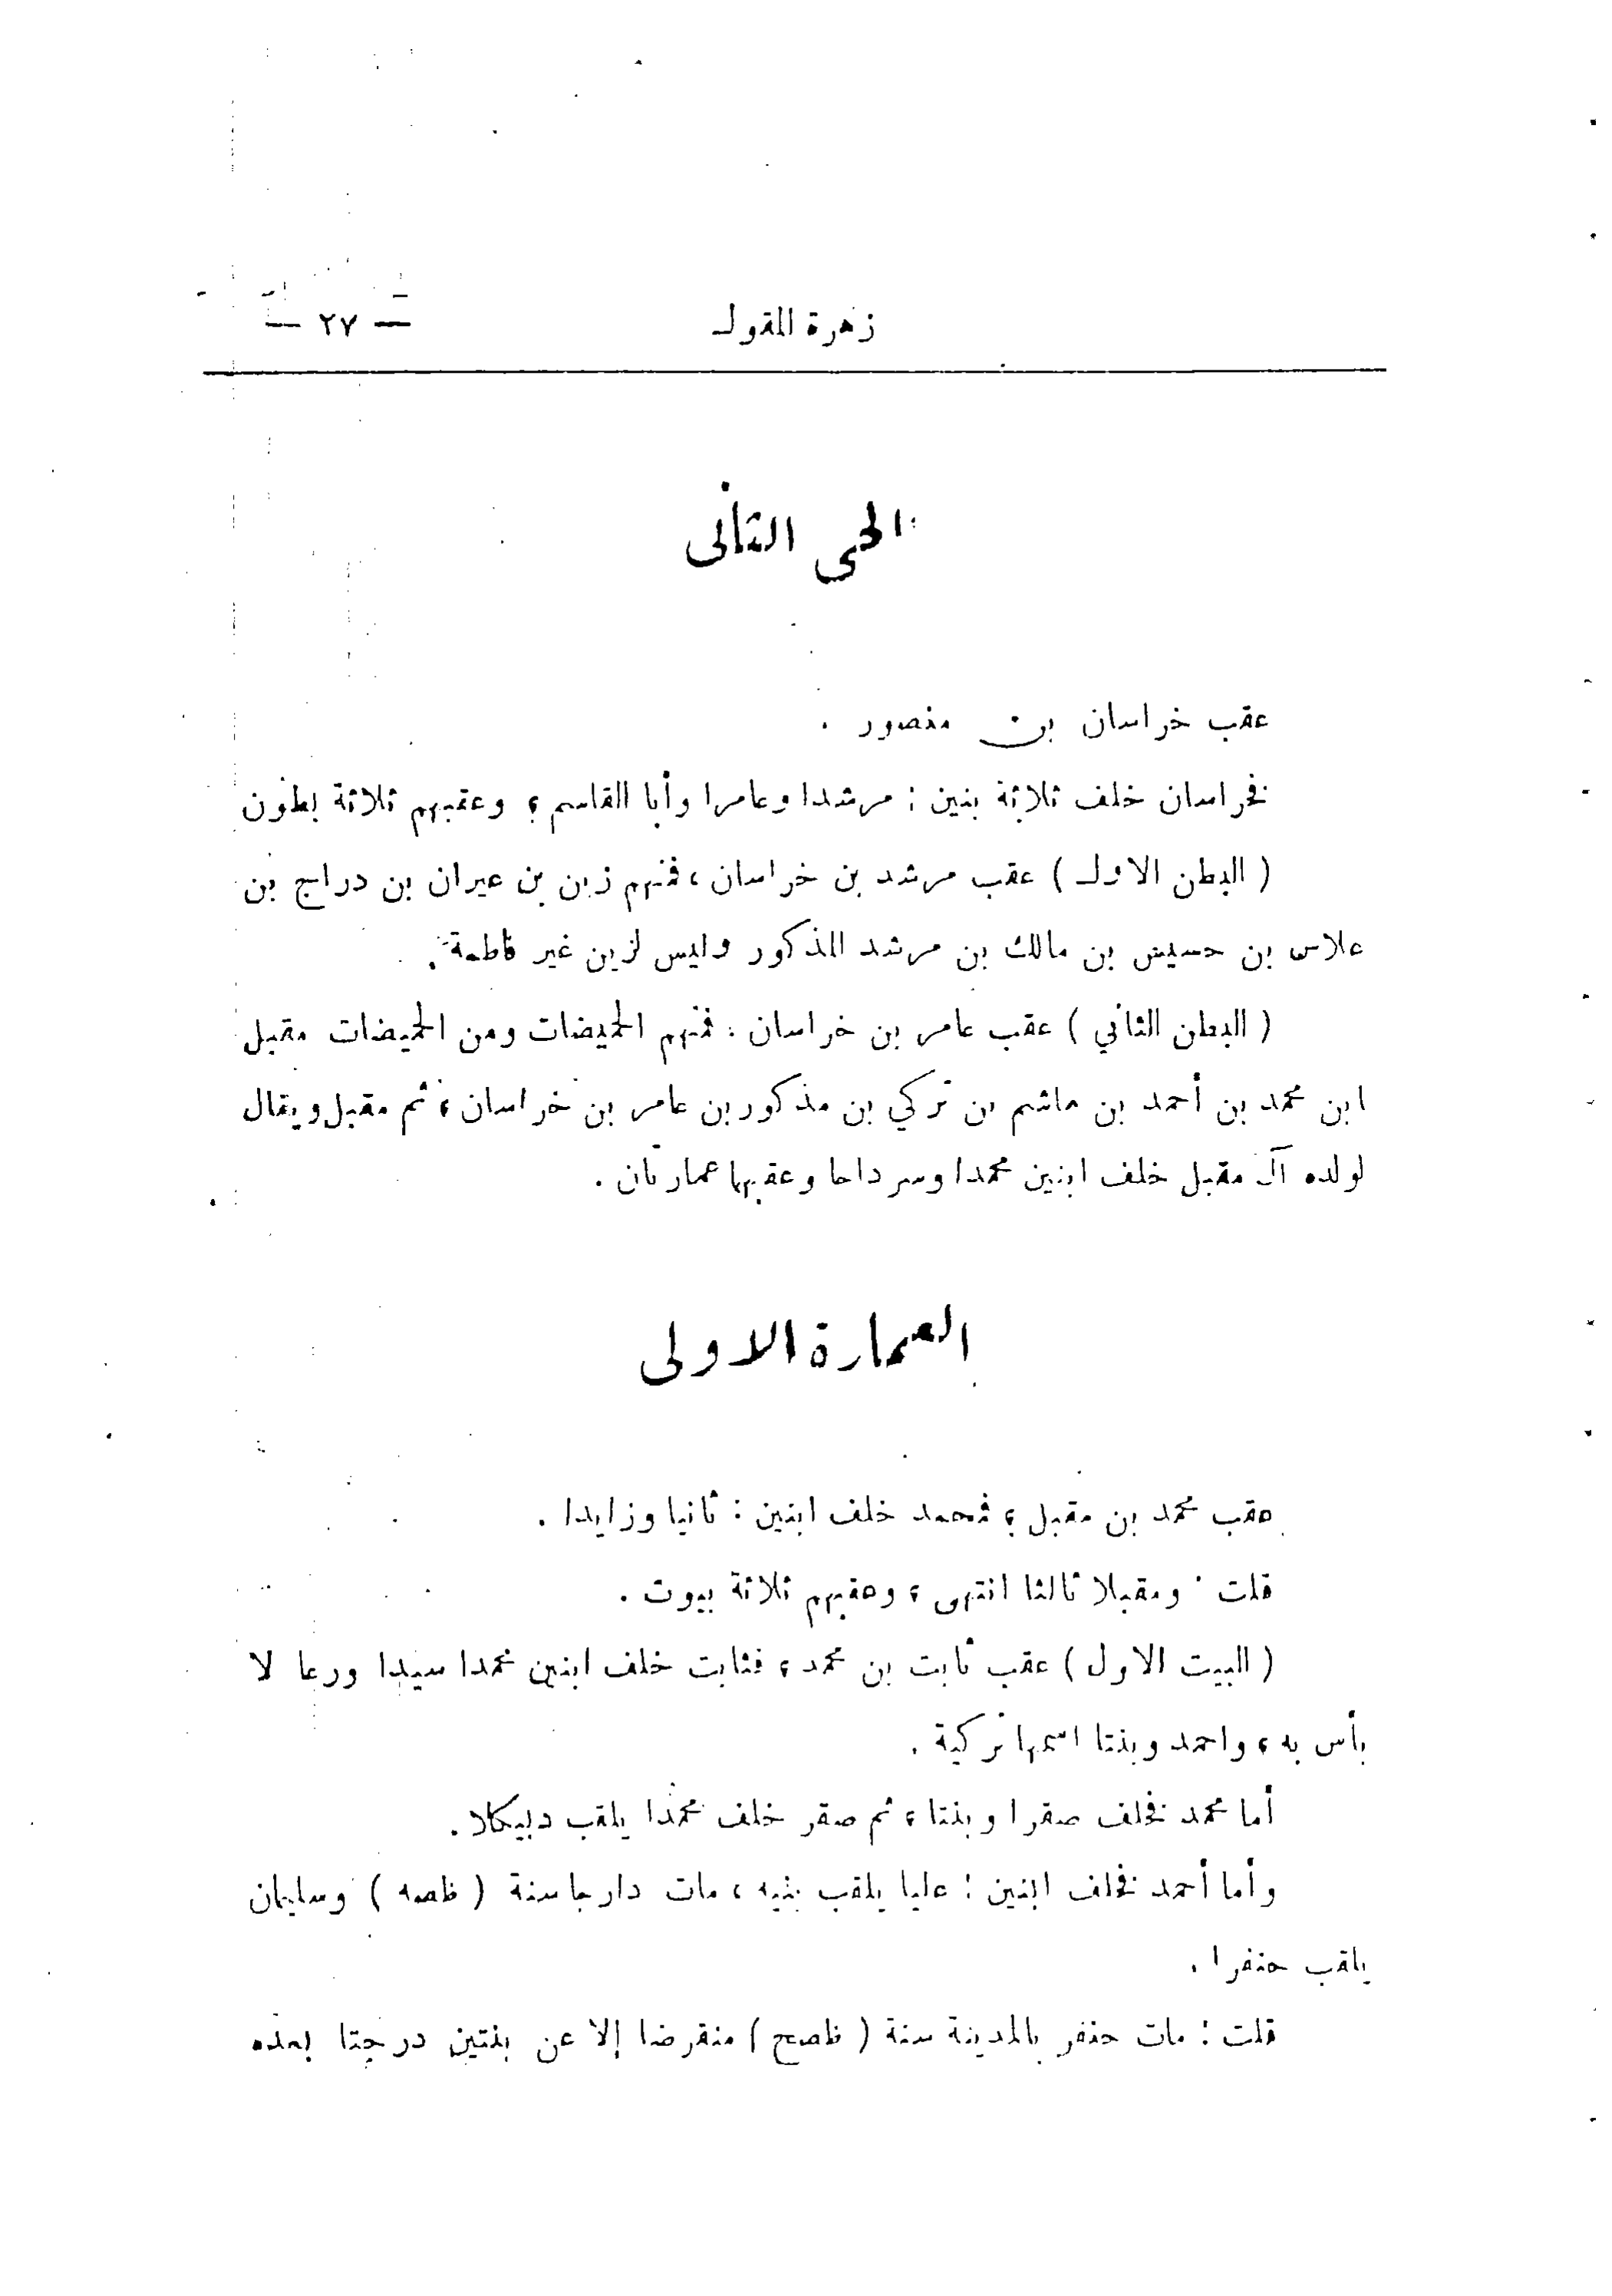 زهرة المقول
— ٢٧ —
الحى الثانى
عقب خراسان بن منصور .
فخراسان خلف ثلاثة بنين : مرشدا وعامرا وأبا القاسم ؛ وعقبهم ثلاثة بطون
( البطن الاول ) عقب مرشد بن خراسان ، فمنهم زين بن عيران بن دراج بن
علاس بن حسيس بن مالك بن مرشد المذكور وليس لزين غير فاطمة .
( البطن الثاني ) عقب عامر بن خراسان : فمنهم الحميضات ومن الحميضات مقبل
ابن محمد بن أحمد بن هاشم بن تركي بن مذكور بن عامر بن خراسان ؛ ثم مقبل ويقال
لولده آل مقبل خلف ابنين محمدا وسرداحا وعقبهما عمارتان .
العمارة الاولى
عقب محمد بن مقبل ؛ فمحمد خلف ابنين : ثانيا وزايدا .
قلت : ومقبلا ثالثا انتهى ؛ وعقبهم ثلاثة بيوت .
( البيت الاول ) عقب ثابت بن محمد ؛ فثابت خلف ابنين محمدا سيدا ورعا لا
بأس به ؛ واحمد وبنتا اسمها تركية .
أما محمد فخلف صقرا وبنتا ؛ ثم صقر خلف محمدا يلقب دبيكلا .
وأما أحمد فخلف ابنين : عليا يلقب بثيه ، مات دارجا سنة ( ظصه ) وسليمان
يلقب حنفرا .
قلت : مات حنفر بالمدينة سنة ( ظصح ) منقرضا إلا عن بنتين درجتا بعده